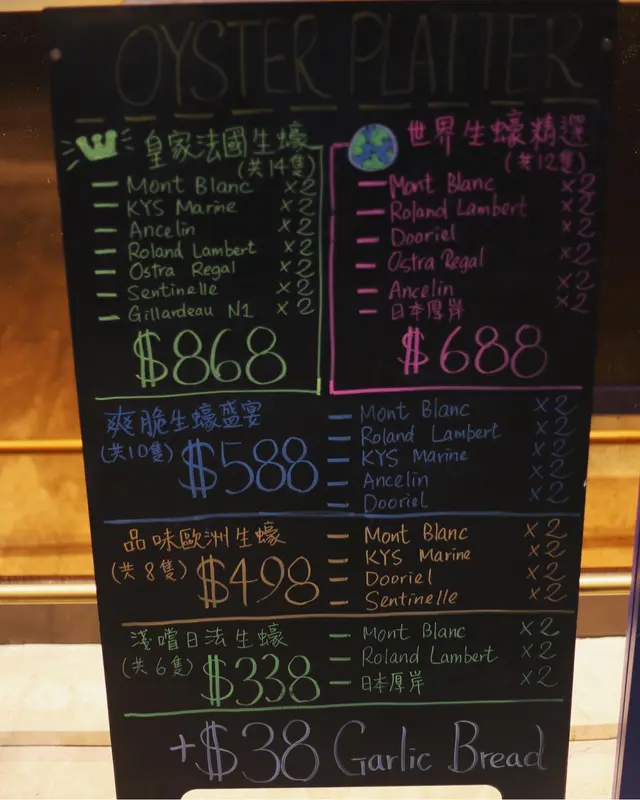 OYSTER PLATTER
皇家法國生蠔
(共14隻)
Mont Blanc x2
KYS Marine x2
Ancelin x2
Roland Lambert x2
Ostra Regal x2
Sentinelle x2
Gillardeau N1 x2
$868
世界生蠔精選
(共12隻)
Mont Blanc x2
Roland Lambert x2
Dooriel x2
Ostra Regal x2
Ancelin x2
日本厚岸 x2
$688
爽脆生蠔盛宴
(共10隻) $588
Mont Blanc x2
Roland Lambert x2
KYS Marine x2
Ancelin x2
Dooriel x2
品味歐洲生蠔
(共8隻) $498
Mont Blanc x2
KYS Marine x2
Dooriel x2
Sentinelle x2
淺嚐日法生蠔
(共6隻) $338
Mont Blanc x2
Roland Lambert x2
日本厚岸 x2
+$38 Garlic Bread